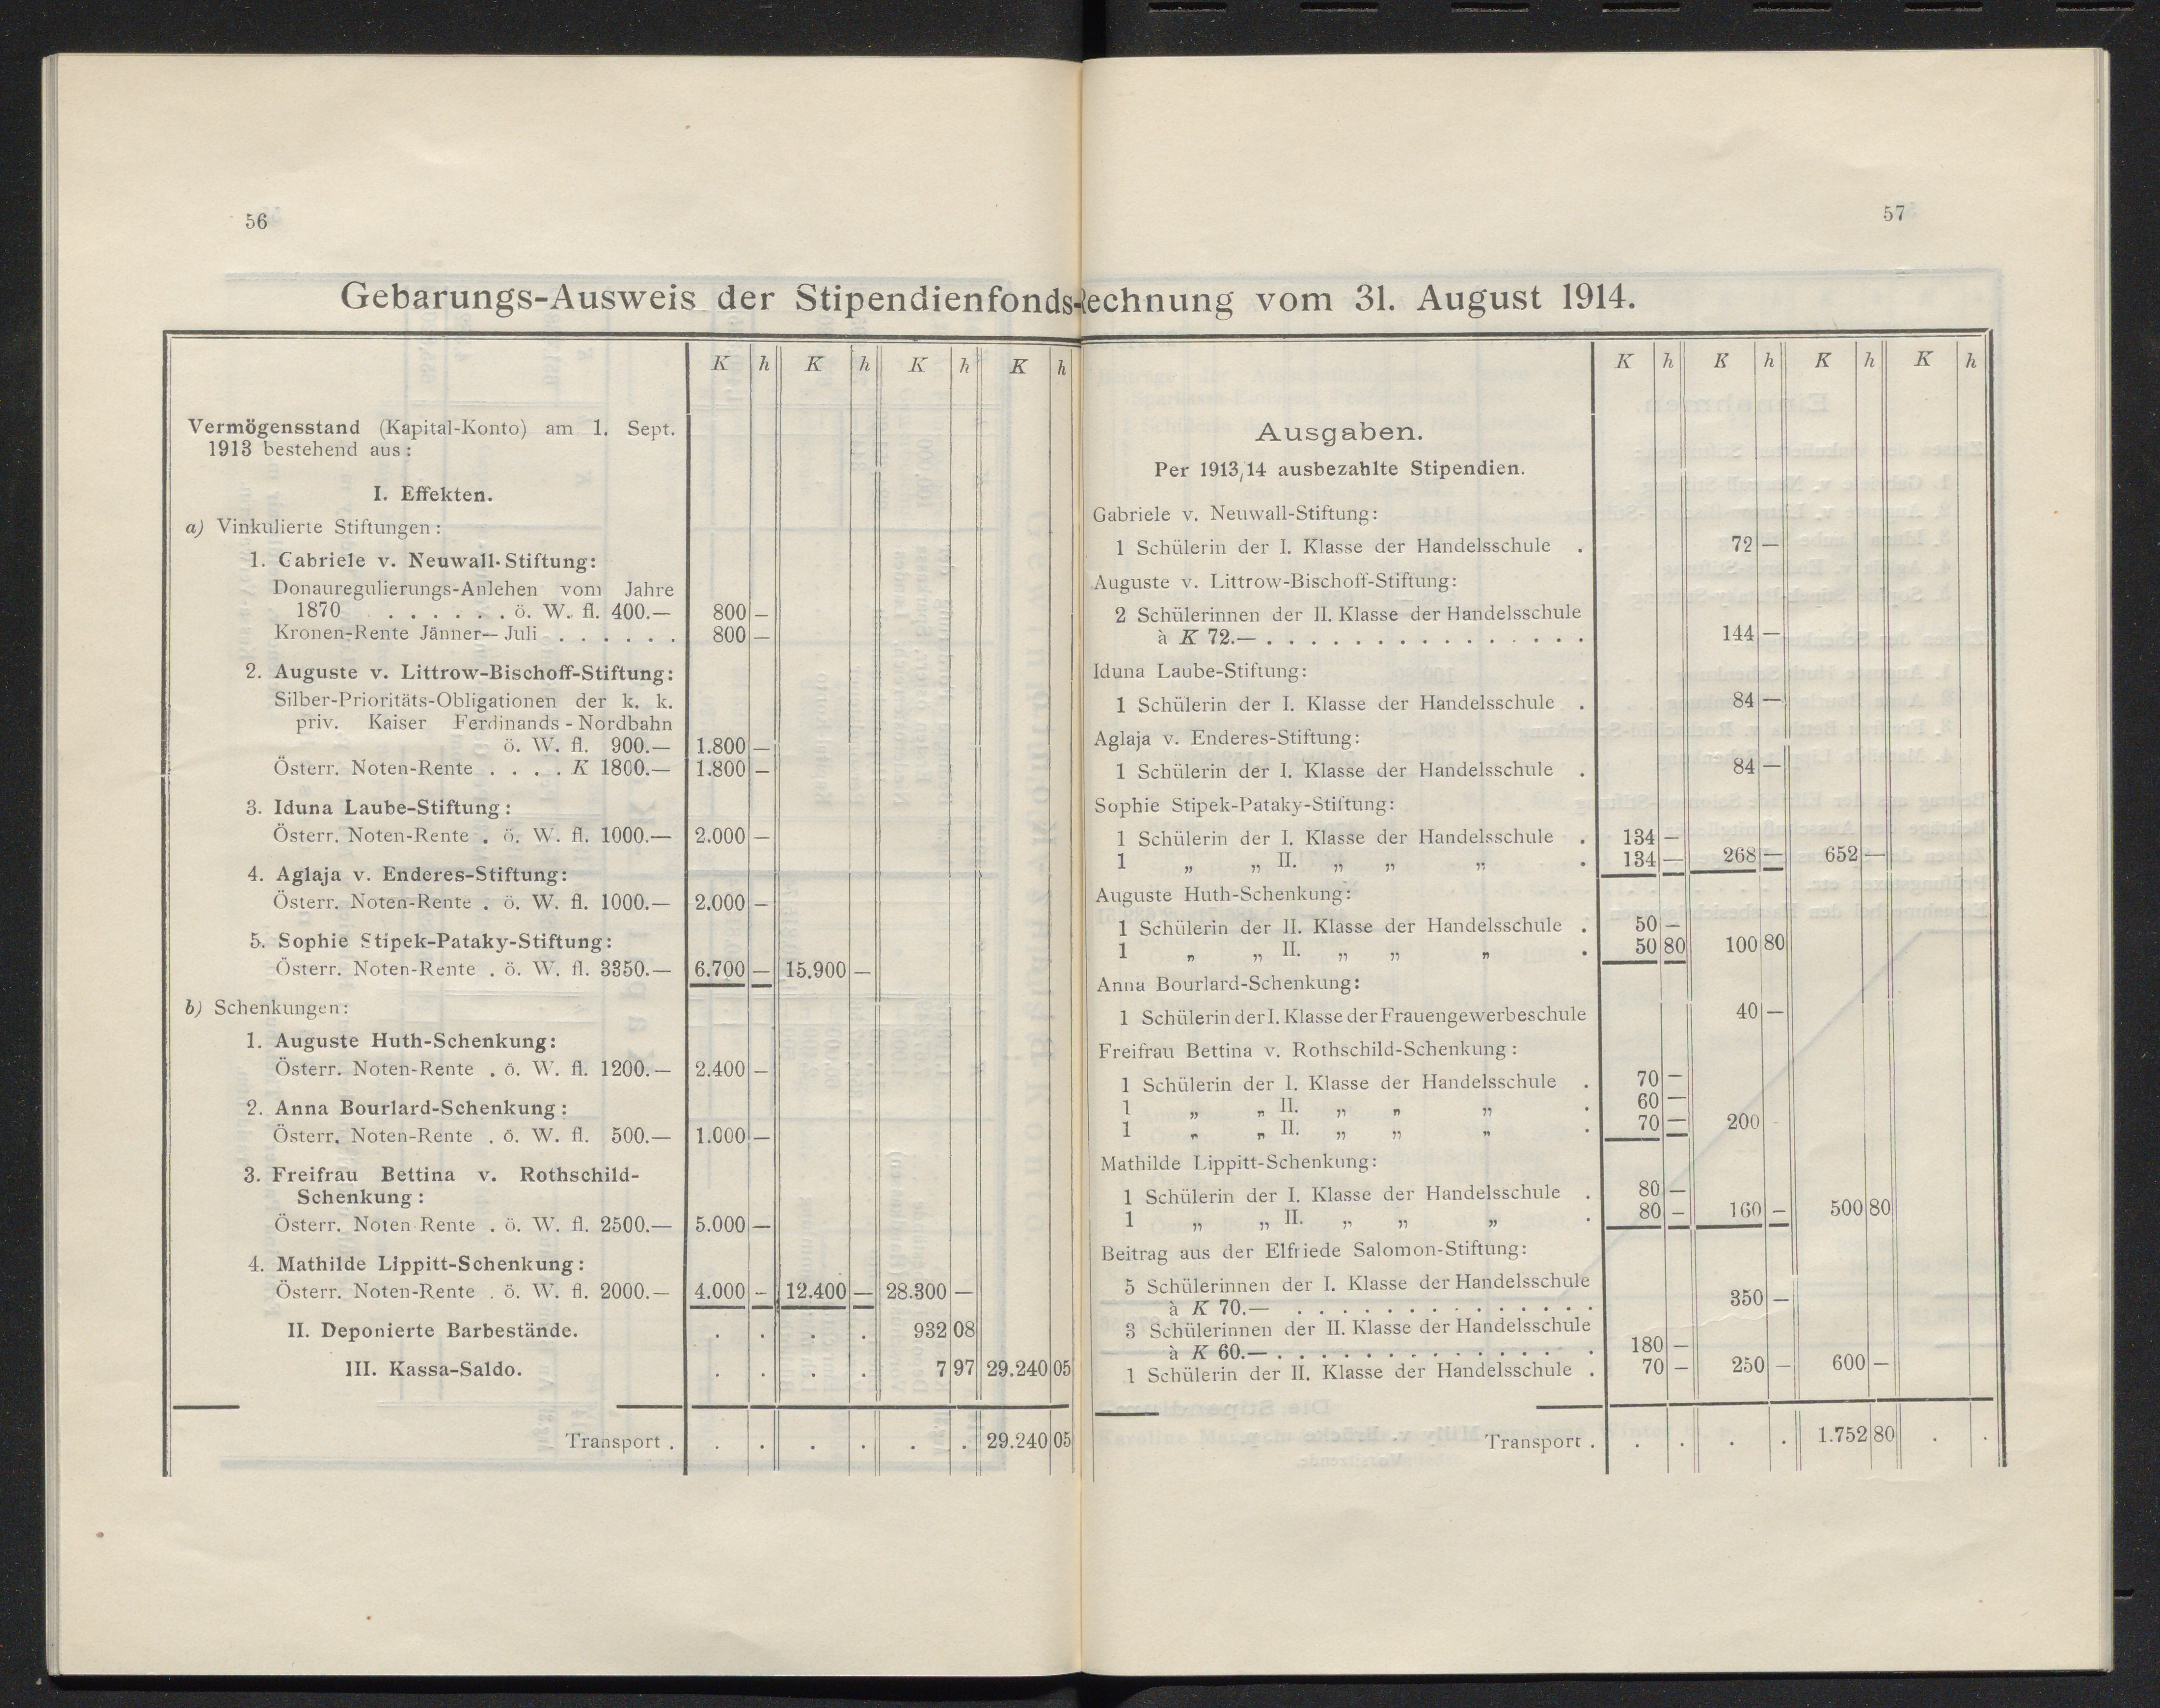 56
Gebarungs-Ausweis der Stipendienfonds-
K h K h K h K h
Vermögensstand (Kapital-Konto) am 1. Sept.
1913 bestehend aus:
I. Effekten.
a) Vinkulierte Stiftungen:
1. Gabriele v. Neuwall-Stiftung:
Donauregulierungs-Anlehen vom Jahre
1870 . . . . . . ö. W. fl. 400.— 800 —
Kronen-Rente Jänner—Juli . . . . . . 800 —
2. Auguste v. Littrow-Bischoff-Stiftung:
Silber-Prioritäts-Obligationen der k. k.
priv. Kaiser Ferdinands-Nordbahn
ö. W. fl. 900.— 1.800 —
Österr. Noten-Rente . . . . K 1800.— 1.800 —
3. Iduna Laube-Stiftung:
Österr. Noten-Rente . ö. W. fl. 1000.— 2.000 —
4. Aglaja v. Enderes-Stiftung:
Österr. Noten-Rente . ö. W. fl. 1000.— 2.000 —
5. Sophie Stipek-Pataky-Stiftung:
Österr. Noten-Rente . ö. W. fl. 3350.— 6.700 — 15.900 —
b) Schenkungen:
1. Auguste Huth-Schenkung:
Österr. Noten-Rente . ö. W. fl. 1200.— 2.400 —
2. Anna Bourlard-Schenkung:
Österr. Noten-Rente . ö. W. fl. 500.— 1.000 —
3. Freifrau Bettina v. Rothschild-
Schenkung:
Österr. Noten Rente . ö. W. fl. 2500.— 5.000 —
4. Mathilde Lippitt-Schenkung:
Österr. Noten-Rente . ö. W. fl. 2000.— 4.000 — 12.400 — 28.300 —
II. Deponierte Barbestände. . . . . 932 08
III. Kassa-Saldo. . . . . 7 97 29.240 05
Transport . . . . . . . 29.240 05
57
echnung vom 31. August 1914.
K h K h K h K h
Ausgaben.
Per 1913/14 ausbezahlte Stipendien.
Gabriele v. Neuwall-Stiftung:
1 Schülerin der I. Klasse der Handelsschule . 72 —
Auguste v. Littrow-Bischoff-Stiftung:
2 Schülerinnen der II. Klasse der Handelsschule
à K 72.— . . . . . . . . . . . . . . . 144 —
Iduna Laube-Stiftung:
1 Schülerin der I. Klasse der Handelsschule . 84 —
Aglaja v. Enderes-Stiftung:
1 Schülerin der I. Klasse der Handelsschule . 84 —
Sophie Stipek-Pataky-Stiftung:
1 Schülerin der I. Klasse der Handelsschule . 134 —
1 „ „ II. „ „ „ . 134 — 268 — 652 —
Auguste Huth-Schenkung:
1 Schülerin der II. Klasse der Handelsschule . 50 —
1 „ „ II. „ „ „ . 50 80 100 80
Anna Bourlard-Schenkung:
1 Schülerin der I. Klasse der Frauengewerbeschule 40 —
Freifrau Bettina v. Rothschild-Schenkung:
1 Schülerin der I. Klasse der Handelsschule . 70 —
1 „ „ II. „ „ „ . 60 —
1 „ „ II. „ „ „ . 70 — 200 -
Mathilde Lippitt-Schenkung:
1 Schülerin der I. Klasse der Handelsschule . 80 —
1 „ „ II. „ „ „ . 80 — 160 — 500 80
Beitrag aus der Elfriede Salomon-Stiftung:
5 Schülerinnen der I. Klasse der Handelsschule
à K 70.— . . . . . . . . . . . . . . 350 —
3 Schülerinnen der II. Klasse der Handelsschule
à K 60.— . . . . . . . . . . . . . . . 180 —
1 Schülerin der II. Klasse der Handelsschule . 70 — 250 — 600 —
Transport . . . . . 1.752 80 . .